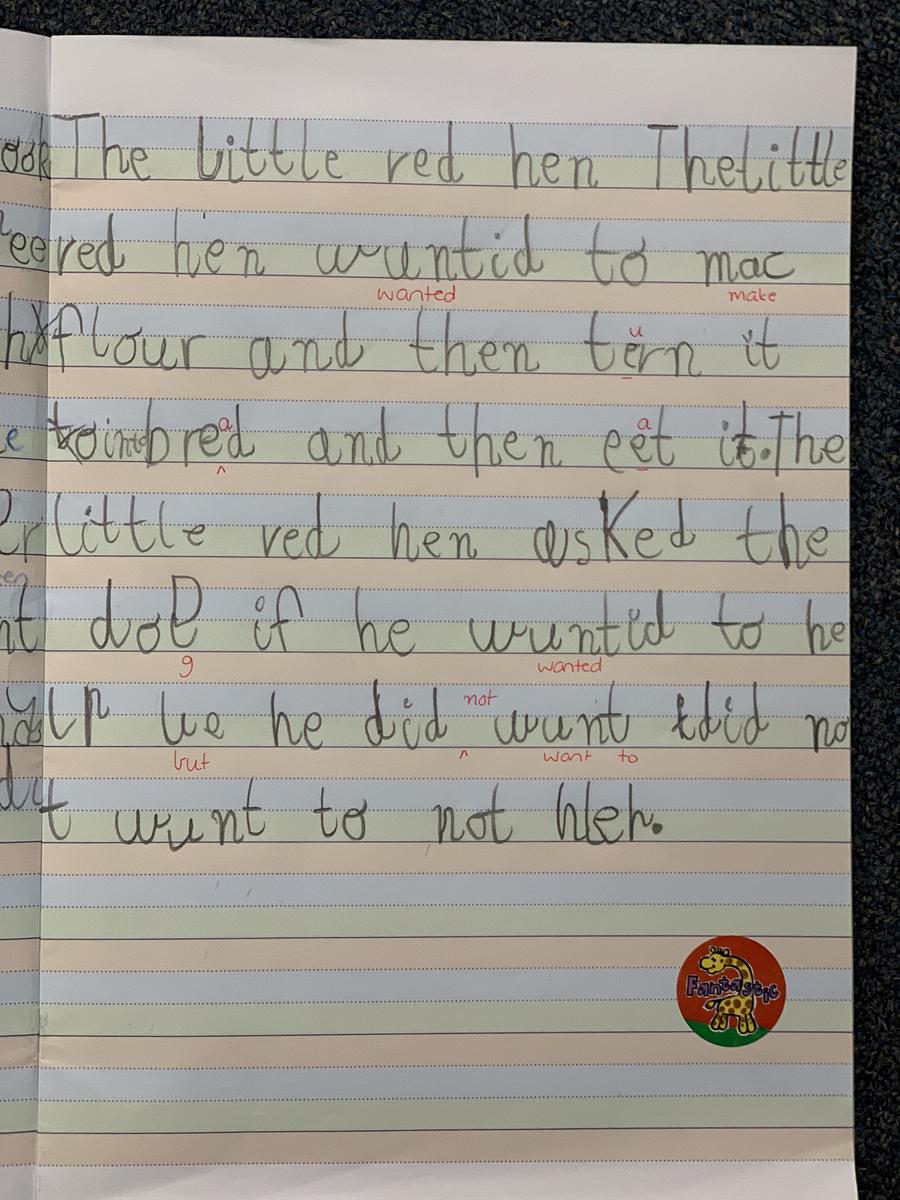 The Little red hen The little
red hen wuntid to mac
wanted make
flour and then tern it
u
into bred and then eet it. The
a a
little red hen asked the
dog if he wuntid to he
g wanted
lp he did not wunt did no
but want to
t wunt to not hleh.
Fantastic